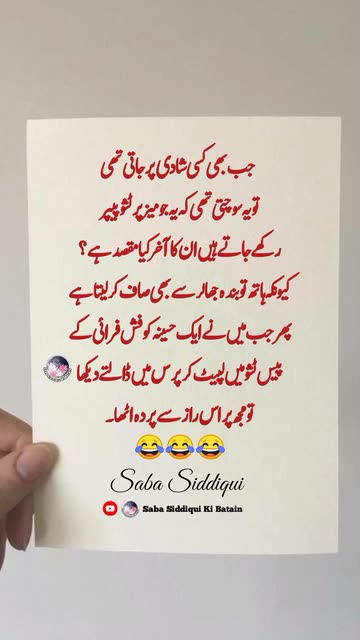 جب بھی کسی شادی پر جاتی تھی
تو یہ سوچتی تھی کہ یہ جو میز پر ٹشو پیپر
رکھے جاتے ہیں ان کا آخر کیا مقصد ہے؟
کیونکہ ہاتھ تو بندہ جھالر سے بھی صاف کر لیتا ہے
پھر جب میں نے ایک حسینہ کو فش فرائی کے
پیس ٹشو میں لپیٹ کر پرس میں ڈالتے دیکھا
تو مجھ پر اس راز سے پردہ اٹھا۔
😂😂😂
Saba Siddiqui
Saba Siddiqui Ki Batain